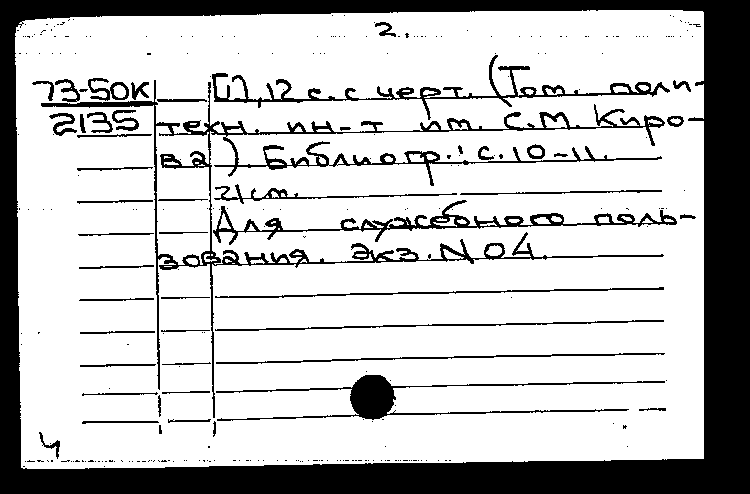 2.
73-50К [1], 12 с. с черт. (Том. поли-
2135 техн. ин-т им. С.М. Киро-
ва). Библиогр.: с. 10-11.
21 см.
Для служебного поль-
зования. Экз. N 04.
Ч